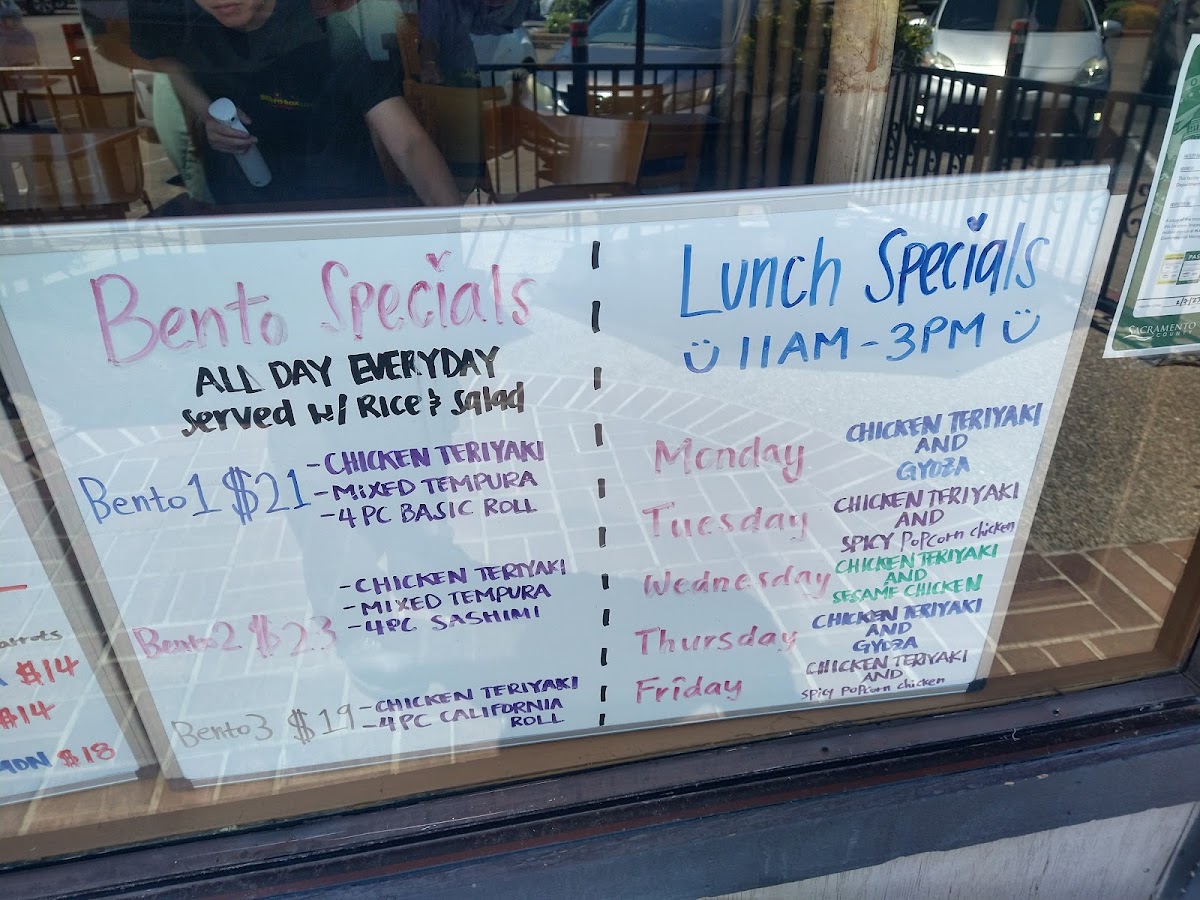 Bento Specials
ALL DAY EVERYDAY
served w/ RICE & salad
Bento 1 $21
- CHICKEN TERIYAKI
- MIXED TEMPURA
- 4 PC BASIC ROLL
Bento 2 $23
- CHICKEN TERIYAKI
- MIXED TEMPURA
- 4PC SASHIMI
Bento 3 $19
- CHICKEN TERIYAKI
- 4PC CALIFORNIA
ROLL
Lunch Specials
11AM - 3PM
Monday
CHICKEN TERIYAKI
AND
GYOZA
Tuesday
CHICKEN TERIYAKI
AND
SPICY POPCorn chicken
Wednesday
CHICKEN TERIYAKI
AND
SESAME CHICKEN
Thursday
CHICKEN TERIYAKI
AND
GYOZA
Friday
CHICKEN TERIYAKI
AND
spicy PoPcorn chicken
$14
$14
$18
PAS
SACRAMENTO
COUNTY